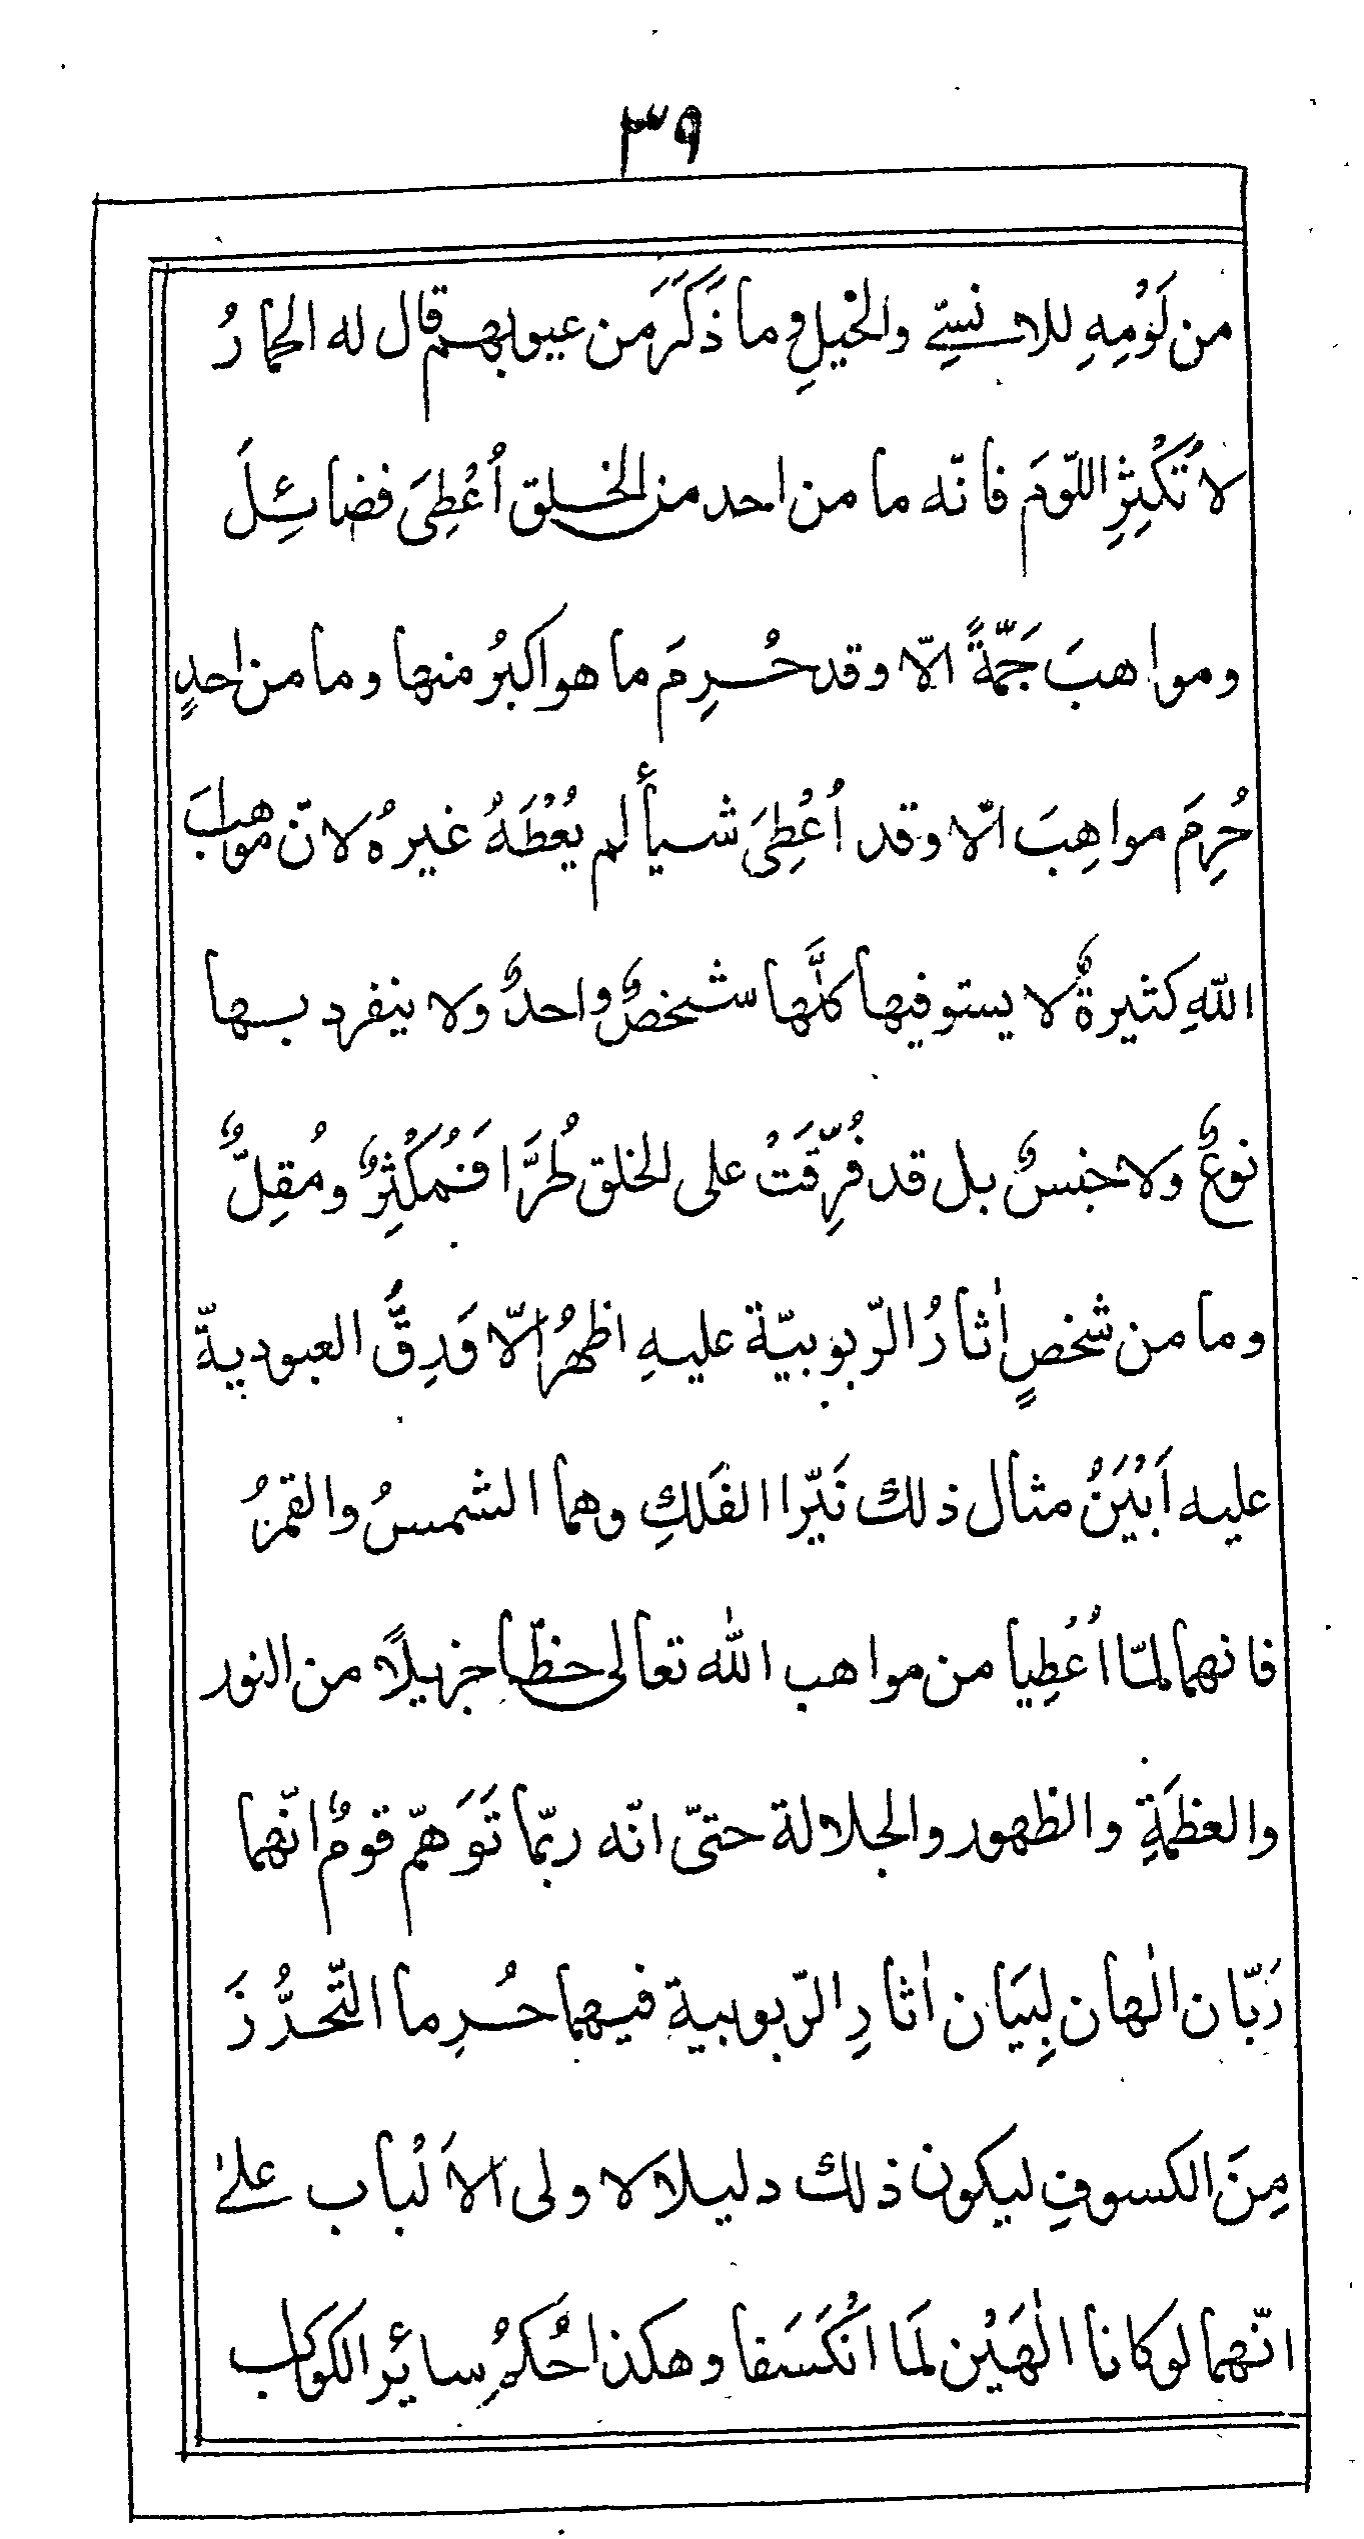 ٣٩
من لَوْمِهِ للانسىِّ والخيلِ وما ذَكَرَ من عيوبهم قال له الحمارُ
لا تُكْثِرِ اللّومَ فانّه ما من احد من الخلق اُعْطِىَ فضائِلَ
ومواهبَ جَمّةً الّا وقد حُرِمَ ما هو اكبرُ منها وما من احدٍ
حُرِمَ مواهِبَ الّا وقد اُعْطِىَ شيأً لم يُعْطَهُ غيرهُ لانّ مواهبَ
اللّهِ كثيرةٌ لا يستوفيها كلَّها شخصٌ واحدٌ ولا ينفرد بها
نوعٌ ولا جنسٌ بل قد فُرِّقَتْ على الخلق طُرًّا فَمُكْثِرٌ ومُقِلٌّ
وما من شخصٍ اٰثارُ الرّبوبيّة عليهِ اظهرُ الّا وَرِقُّ العبوديةّ
عليه اَبْيَنُ مثال ذلك نَيّرا الفَلَكِ وهما الشمسُ والقمرُ
فانهما لمّا اُعْطِيا من مواهب اللّٰه تعالى حظّا جزيلًا من النور
والعظمَةِ والظهور والجلالة حتىّ انّه ربّما تَوَهّم قومٌ انّهما
رَبّان الٰهان لِبَيَان اٰثارِ الرّبوبية فيهما حُرِما التّحرُّزَ
مِنَ الكسوفِ ليكون ذلك دليلا لاولى الاَلْباب علىٰ
انّهما لو كانا الٰهَيْن لَمَا انْكَسَفا وهكذا حُكمُ سائِر الكواكب